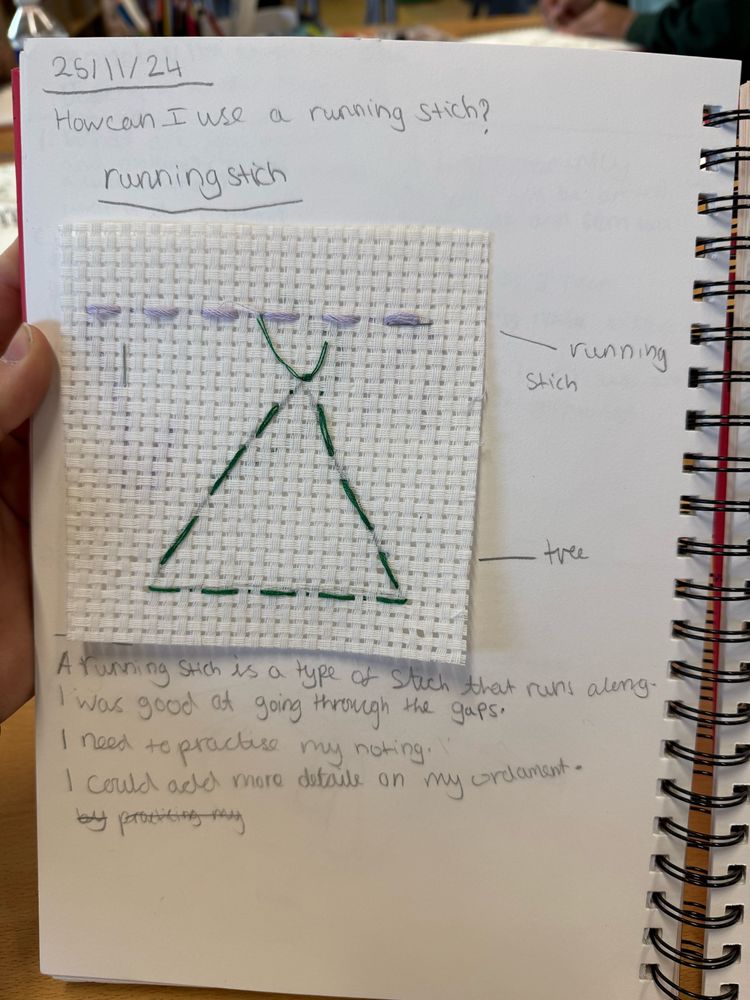 25/11/24
How can I use a running stich?
running stich
running
stich
tree
A running stich is a type of stich that runs along.
I was good at going through the gaps.
I need to practise my noting.
I could add more detaile on my ordament.
by practicing my